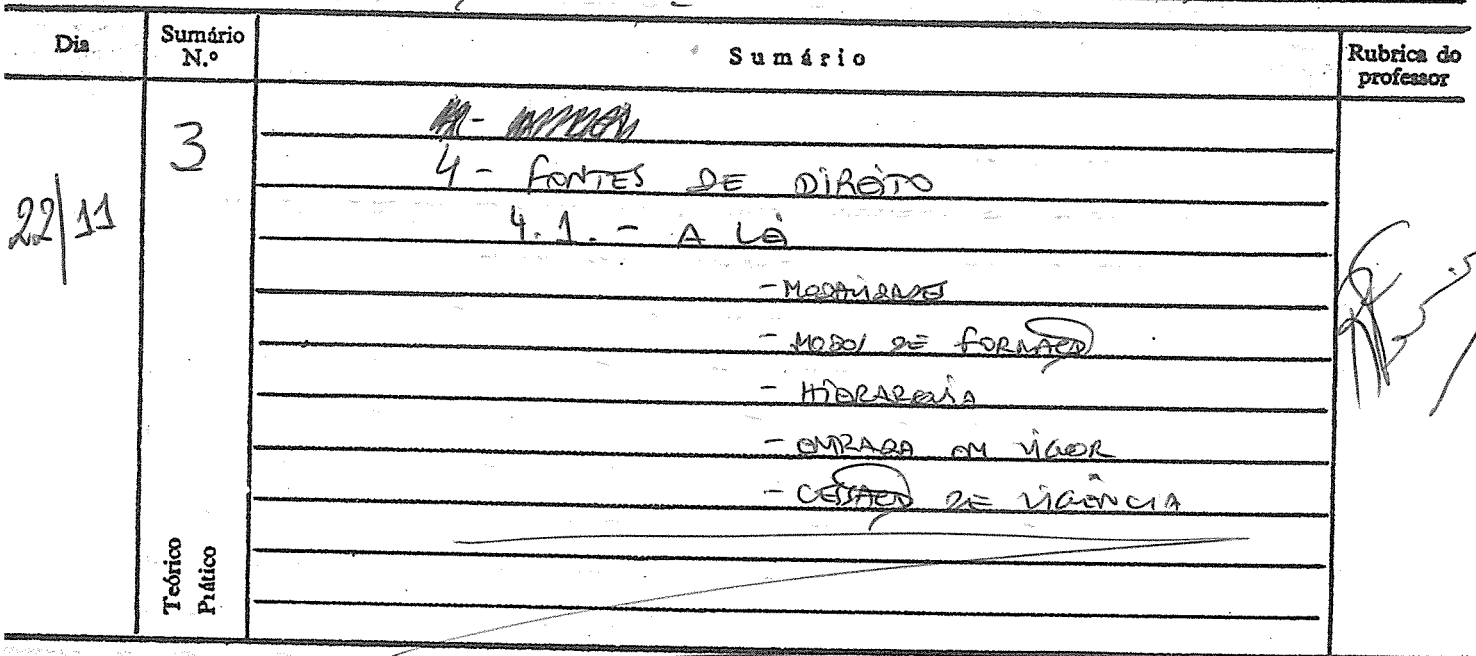 Dia
Sumário N.º
Sumário
Rubrica do professor
22/11
3
4 - FONTES DE DIREITO
4.1. - A LEI
- MODALIDADES
- MODOS DE FORMAÇÃO
- HIERARQUIA
- ENTRADA EM VIGOR
- CESSAÇÃO DE VIGÊNCIA
Teórico
Prático